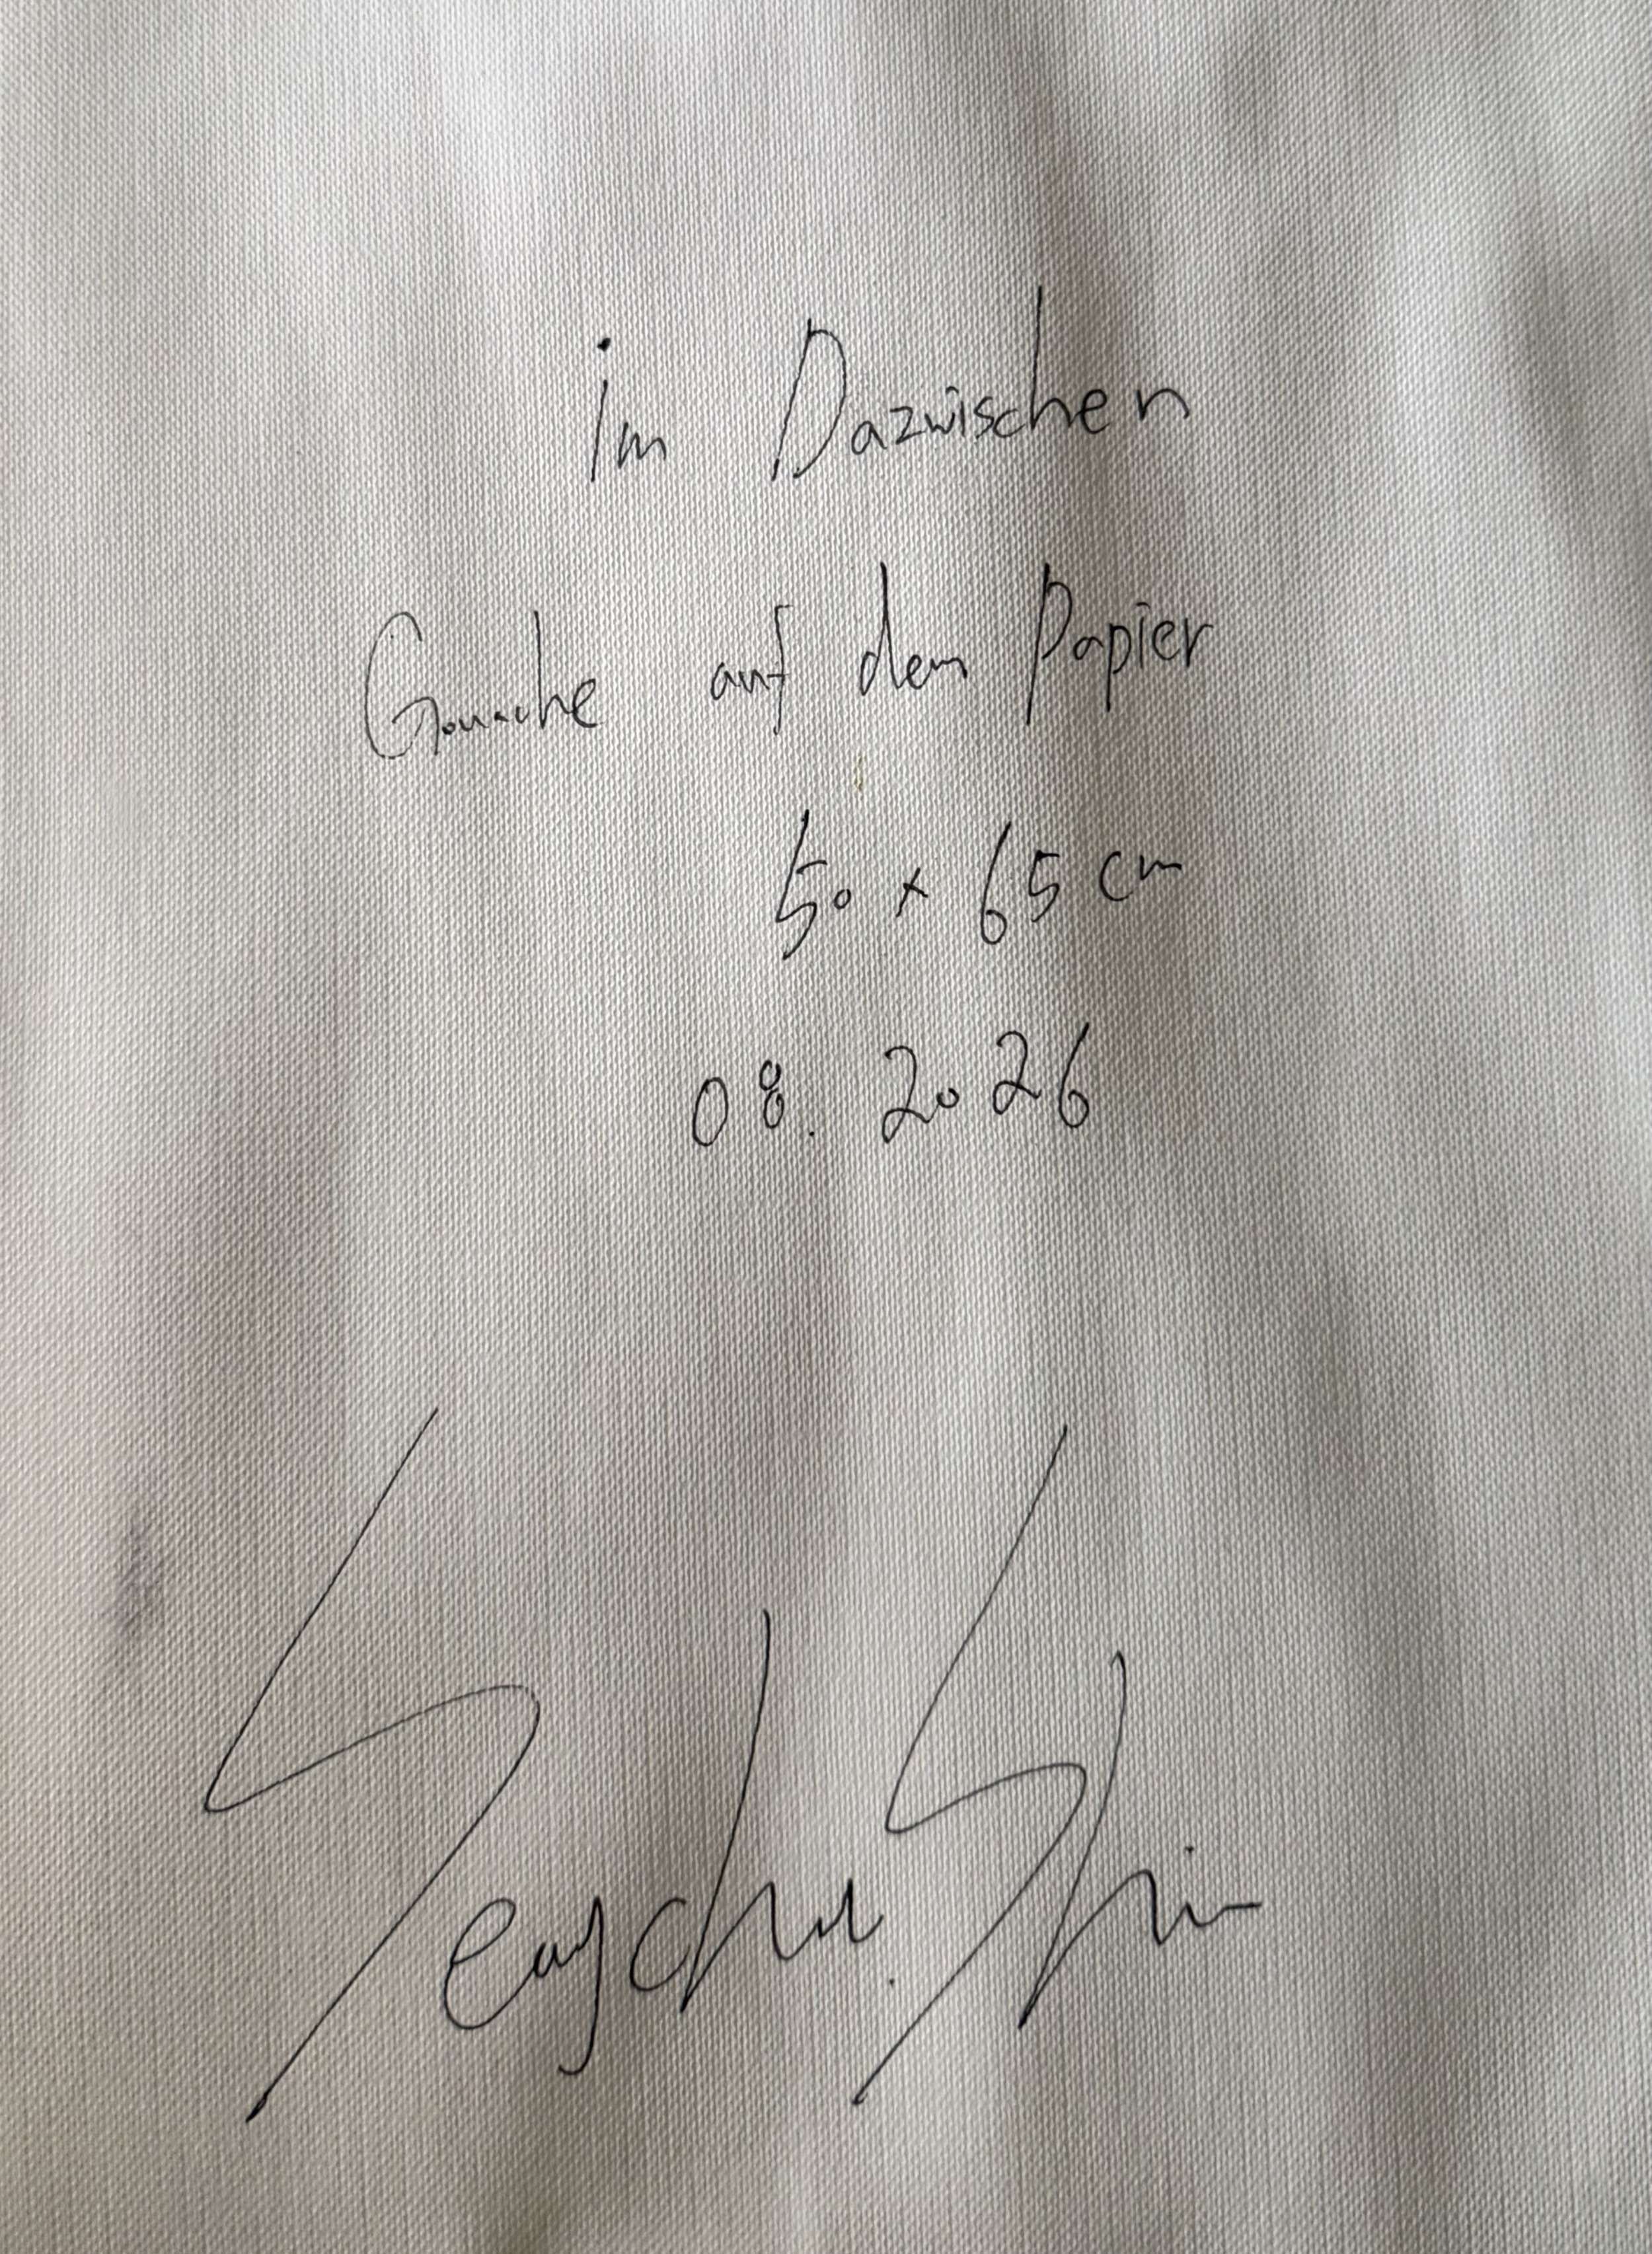 im Dazwischen
Gouache auf dem Papier
50 x 65 cm
08. 2026
Shin